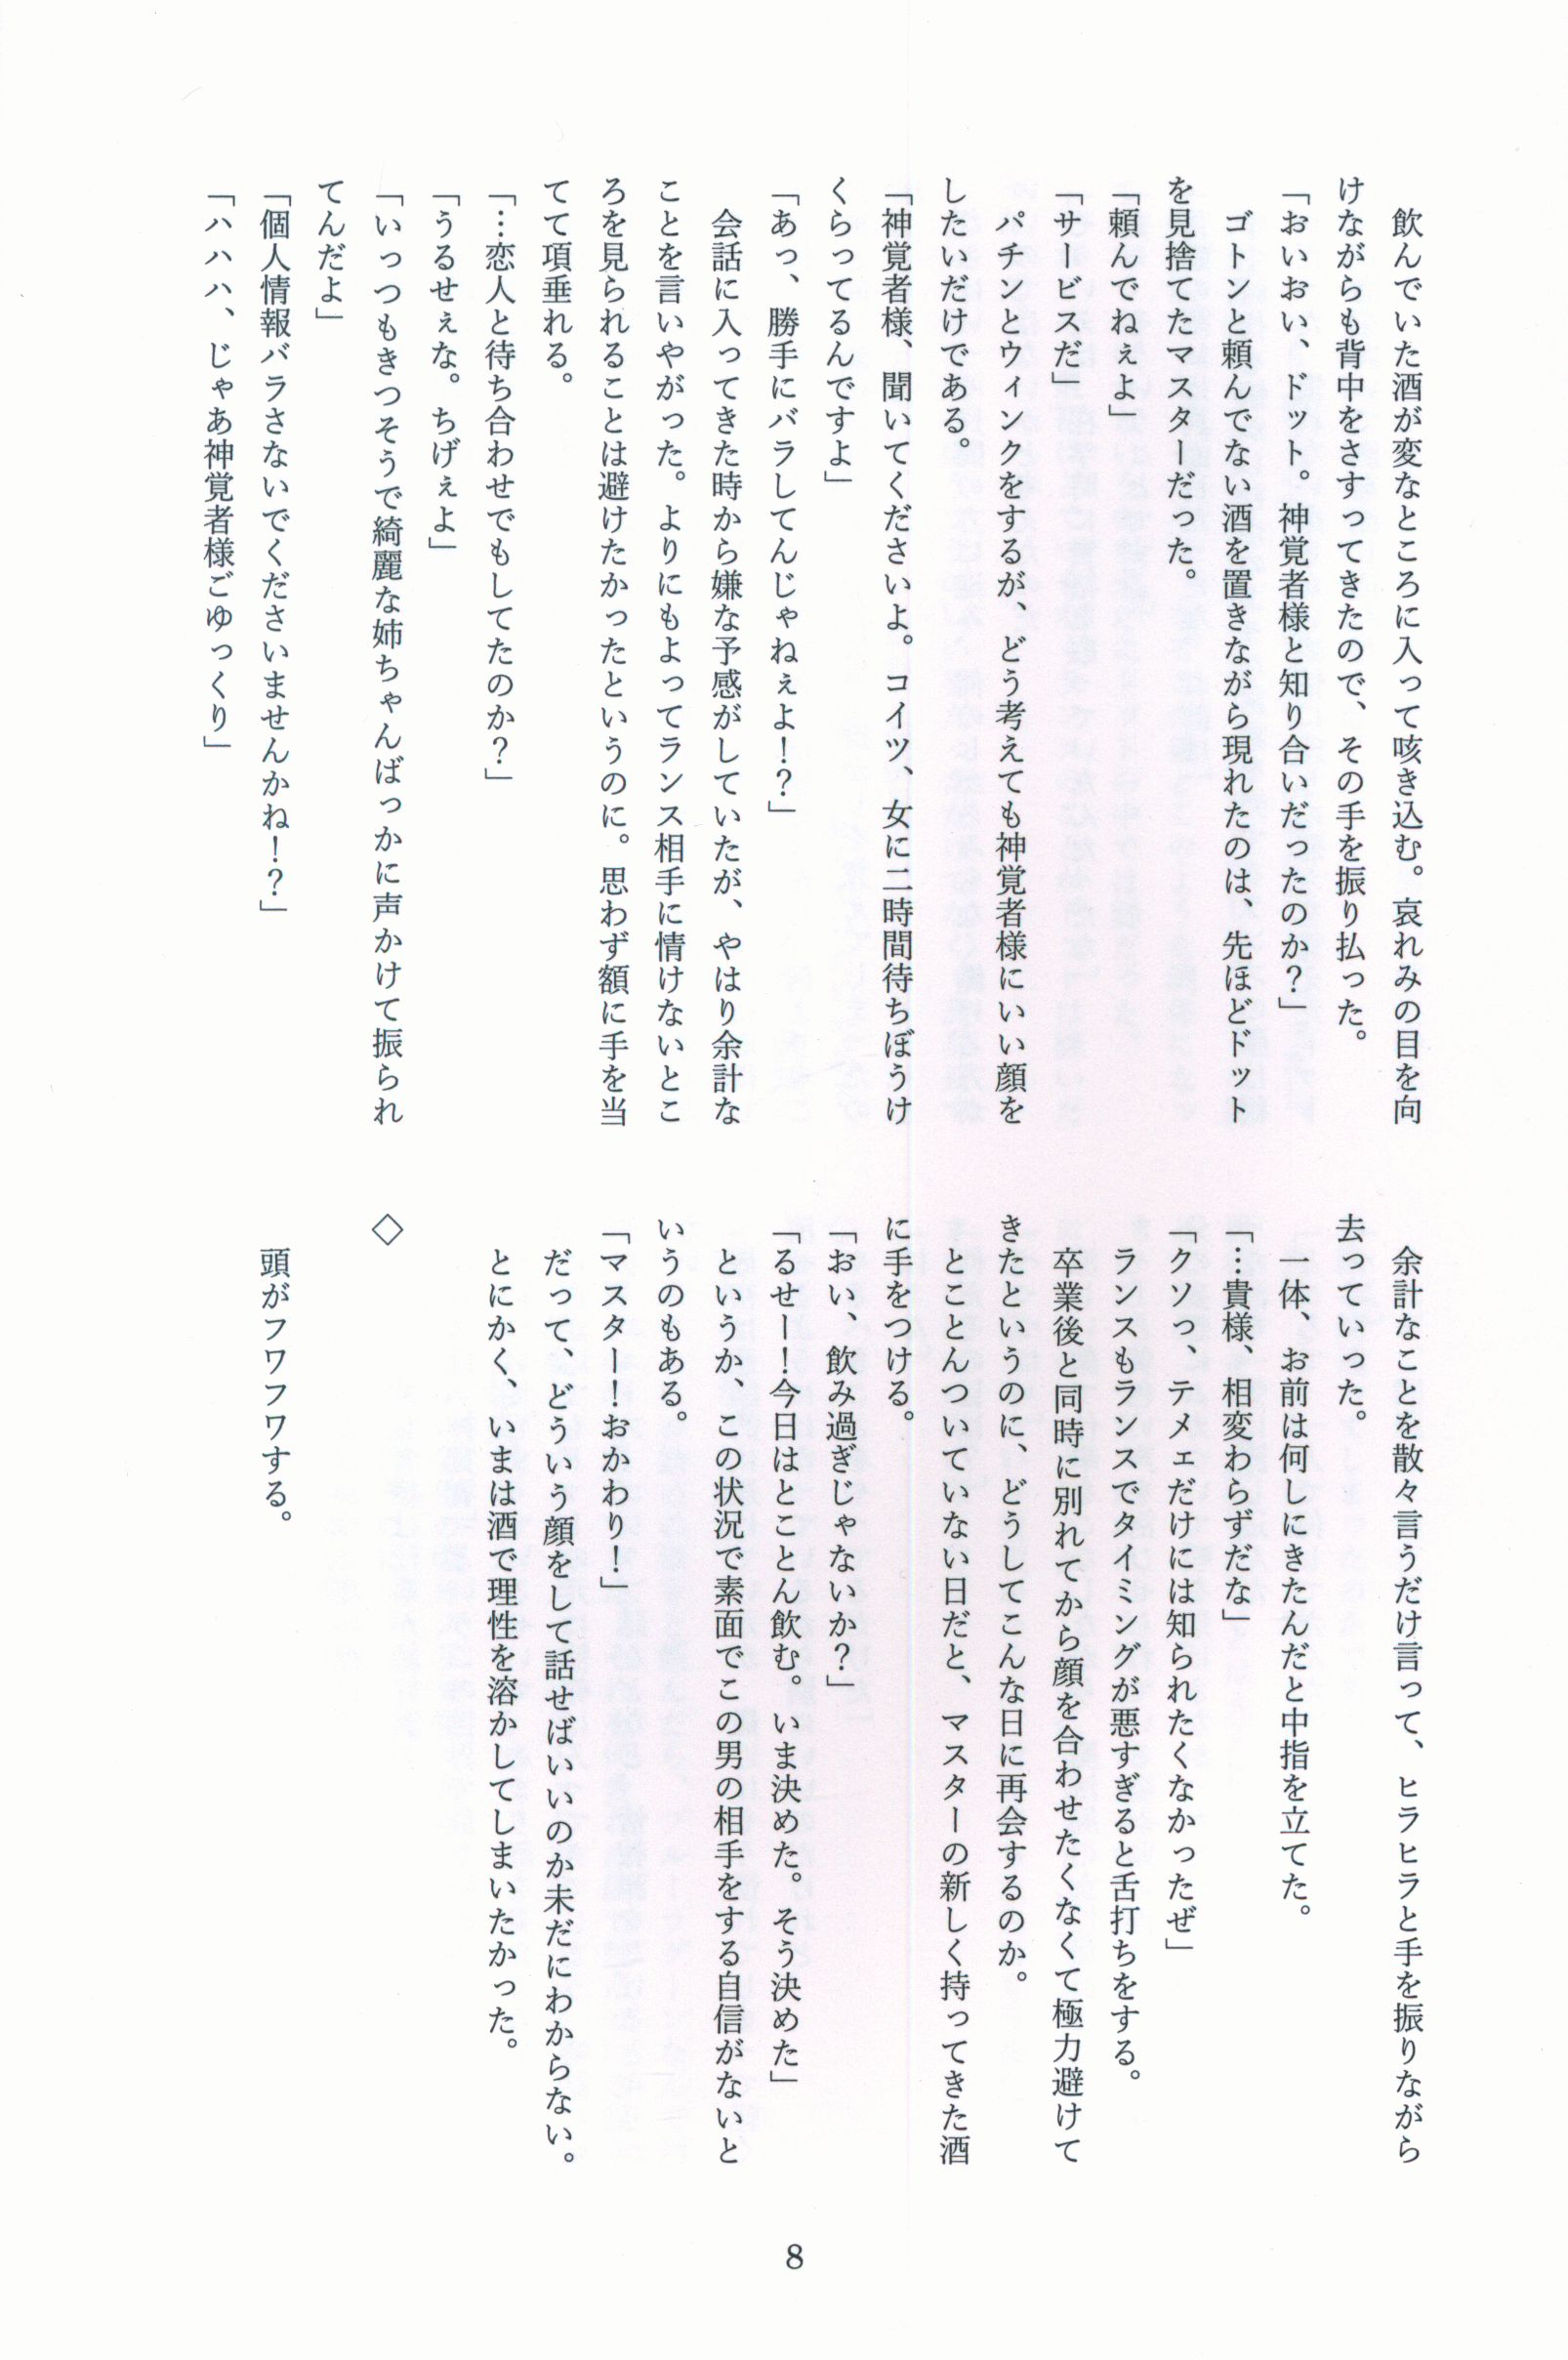 飲んでいた酒が変なところに入って咳き込む。哀れみの目を向
けながらも背中をさすってきたので、その手を振り払った。
「おいおい、ドット。神覚者様と知り合いだったのか？」
ゴトンと頼んでない酒を置きながら現れたのは、先ほどドット
を見捨てたマスターだった。
「頼んでねぇよ」
「サービスだ」
パチンとウィンクをするが、どう考えても神覚者様にいい顔を
したいだけである。
「神覚者様、聞いてくださいよ。コイツ、女に二時間待ちぼうけ
くらってるんですよ」
「あっ、勝手にバラしてんじゃねぇよ！？」
会話に入ってきた時から嫌な予感がしていたが、やはり余計な
ことを言いやがった。よりにもよってランス相手に情けないとこ
ろを見られることは避けたかったというのに。思わず額に手を当
てて項垂れる。
「…恋人と待ち合わせでもしてたのか？」
「うるせぇな。ちげぇよ」
「いっつもきつそうで綺麗な姉ちゃんばっかに声かけて振られ
てんだよ」
「個人情報バラさないでくださいませんかね！？」
「ハハハ、じゃあ神覚者様ごゆっくり」
余計なことを散々言うだけ言って、ヒラヒラと手を振りながら
去っていった。
一体、お前は何しにきたんだと中指を立てた。
「…貴様、相変わらずだな」
「クソっ、テメェだけには知られたくなかったぜ」
ランスもランスでタイミングが悪すぎると舌打ちをする。
卒業後と同時に別れてから顔を合わせたくなくて極力避けて
きたというのに、どうしてこんな日に再会するのか。
とことんついていない日だと、マスターの新しく持ってきた酒
に手をつける。
「おい、飲み過ぎじゃないか？」
「るせー！今日はとことん飲む。いま決めた。そう決めた」
というか、この状況で素面でこの男の相手をする自信がないと
いうのもある。
「マスター！おかわり！」
だって、どういう顔をして話せばいいのか未だにわからない。
とにかく、いまは酒で理性を溶かしてしまいたかった。
◇
頭がフワフワする。
8